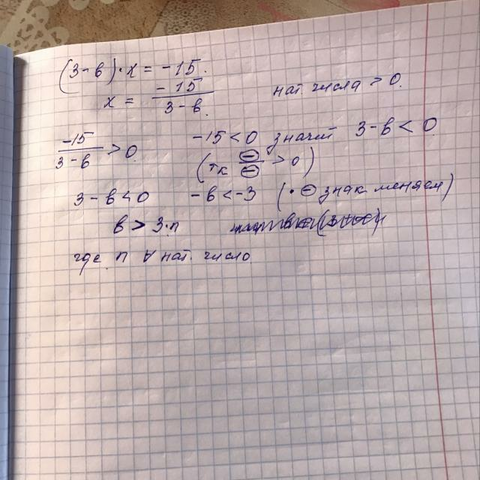 (3-в)·х = -15.
х = -15 / 3-в. нат. числа > 0.
-15 / 3-в > 0 -15 < 0 значит 3-в < 0
(тк ⊖ / ⊖ > 0)
3-в < 0 -в < -3 (· ⊖ знак меняем)
в > 3·п
где п ∀ нат. число